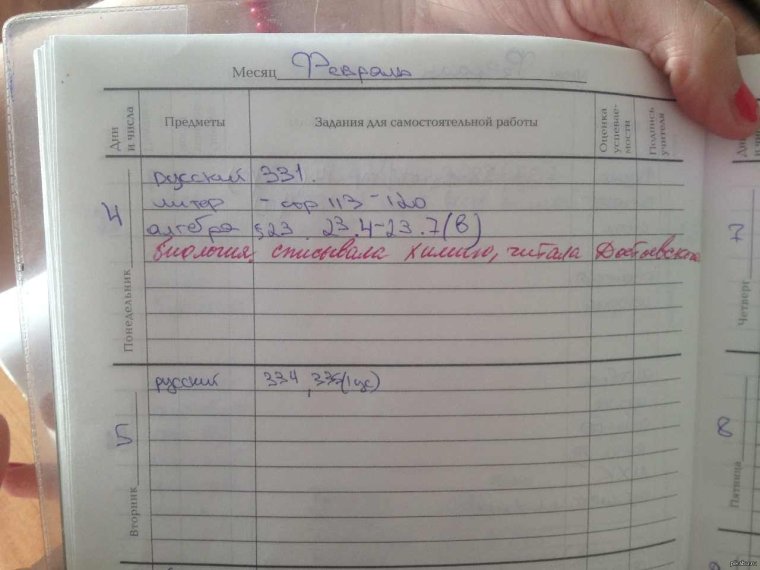 Месяц Февраль
Дни и числа Предметы Задания для самостоятельной работы Оценка успеваемости Подпись учителя
4 Понедельник
русский 331.
литер - стр 113-120
алгебра §23 23.4-23.7(в)
биология, списывала химию, читала Достоевского
5 Вторник
русский 334, 335(1 ус)
7 Четверг
8 Пятница